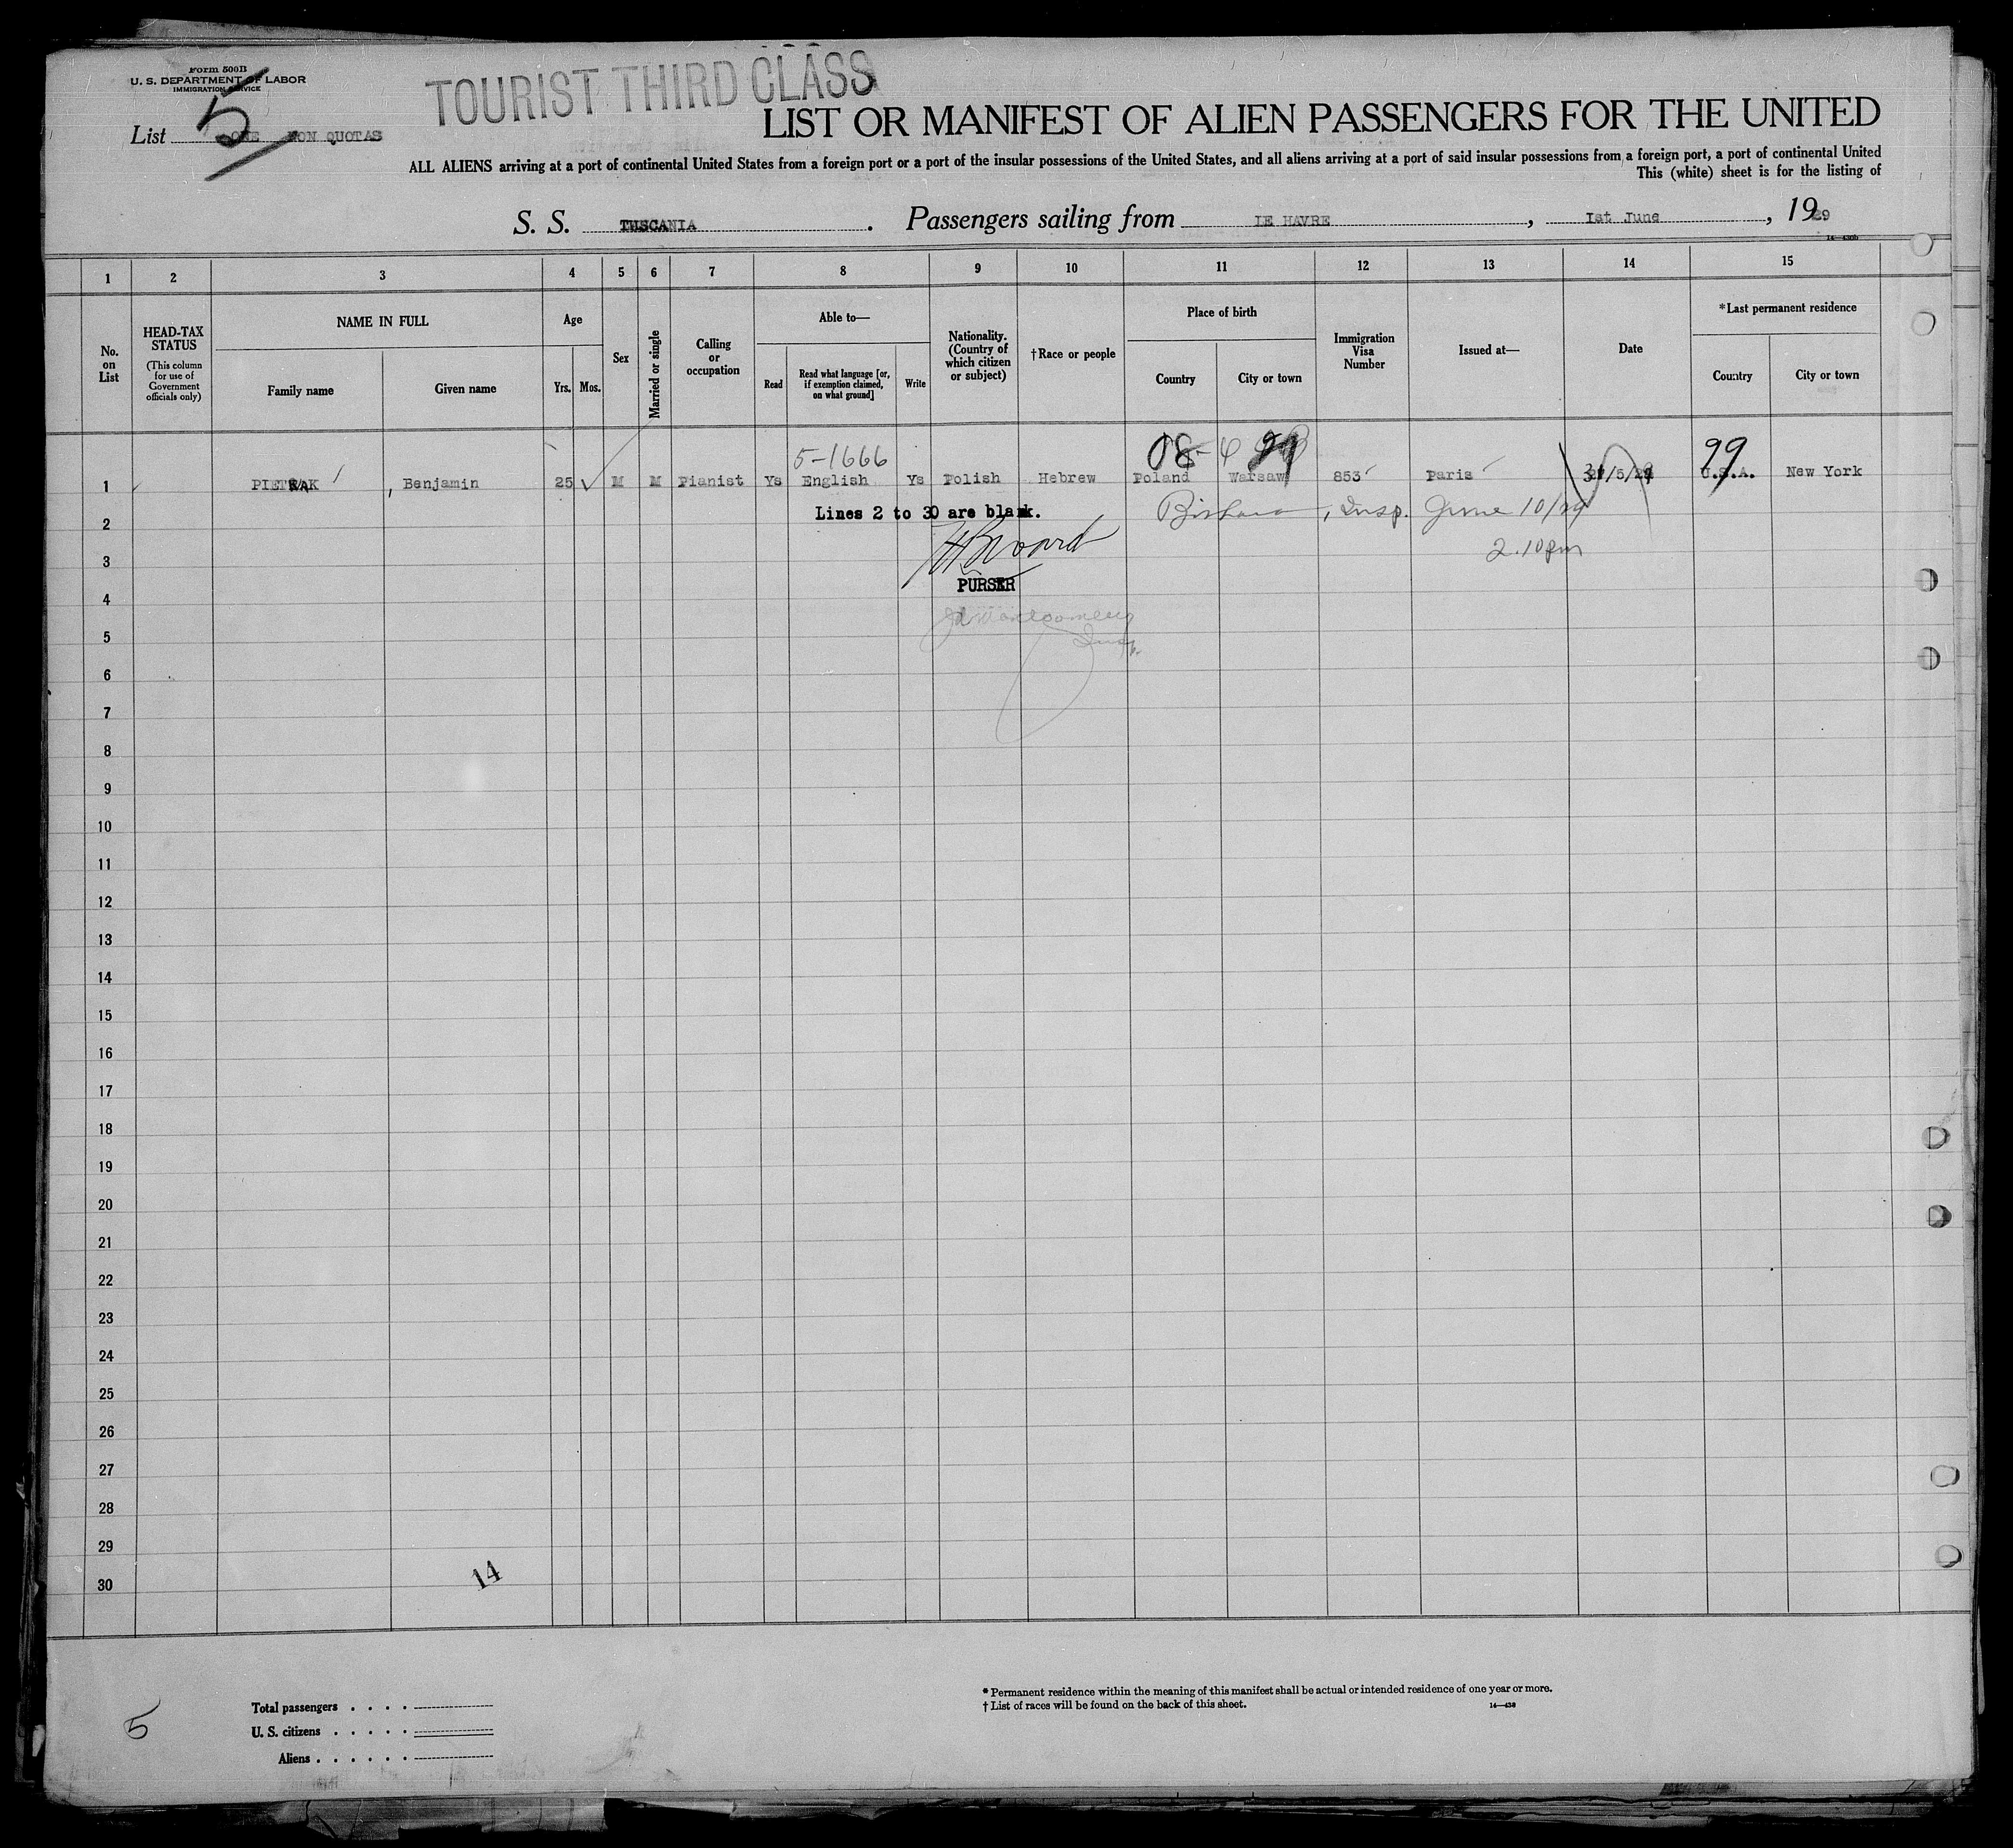 Form 500B
U. S. DEPARTMENT OF LABOR
IMMIGRATION SERVICE
TOURIST THIRD CLASS
LIST OR MANIFEST OF ALIEN PASSENGERS FOR THE UNITED
List ONE NON QUOTAS
5
ALL ALIENS arriving at a port of continental United States from a foreign port or a port of the insular possessions of the United States, and all aliens arriving at a port of said insular possessions from a foreign port, a port of continental United
This (white) sheet is for the listing of
S. S. TUSCANIA. Passengers sailing from LE HAVRE, Ist June, 1929
14—430b
1 2 3 4 5 6 7 8 9 10 11 12 13 14 15
No. on List
HEAD-TAX STATUS
(This column for use of Government officials only)
NAME IN FULL
Family name
Given name
Age
Yrs.
Mos.
Sex
Married or single
Calling or occupation
Able to—
Read
Read what language [or, if exemption claimed, on what ground]
Write
Nationality. (Country of which citizen or subject)
†Race or people
Place of birth
Country
City or town
Immigration Visa Number
Issued at—
Date
*Last permanent residence
Country
City or town
5-1666
99
1 PIETRAK, Benjamin 25 M M Pianist Ys English Ys Polish Hebrew Poland Warsaw 853 Paris 31/5/29 U.S.A. New York
2 Lines 2 to 30 are blank. , Insp. June 10/29
3 2.10pm
PURSER
4
5 Insp.
6
7
8
9
10
11
12
13
14
15
16
17
18
19
20
21
22
23
24
25
26
27
28
29
30
14
5
Total passengers . . . .
U. S. citizens . . . . .
Aliens . . . . . .
* Permanent residence within the meaning of this manifest shall be actual or intended residence of one year or more.
† List of races will be found on the back of this sheet.
14—430